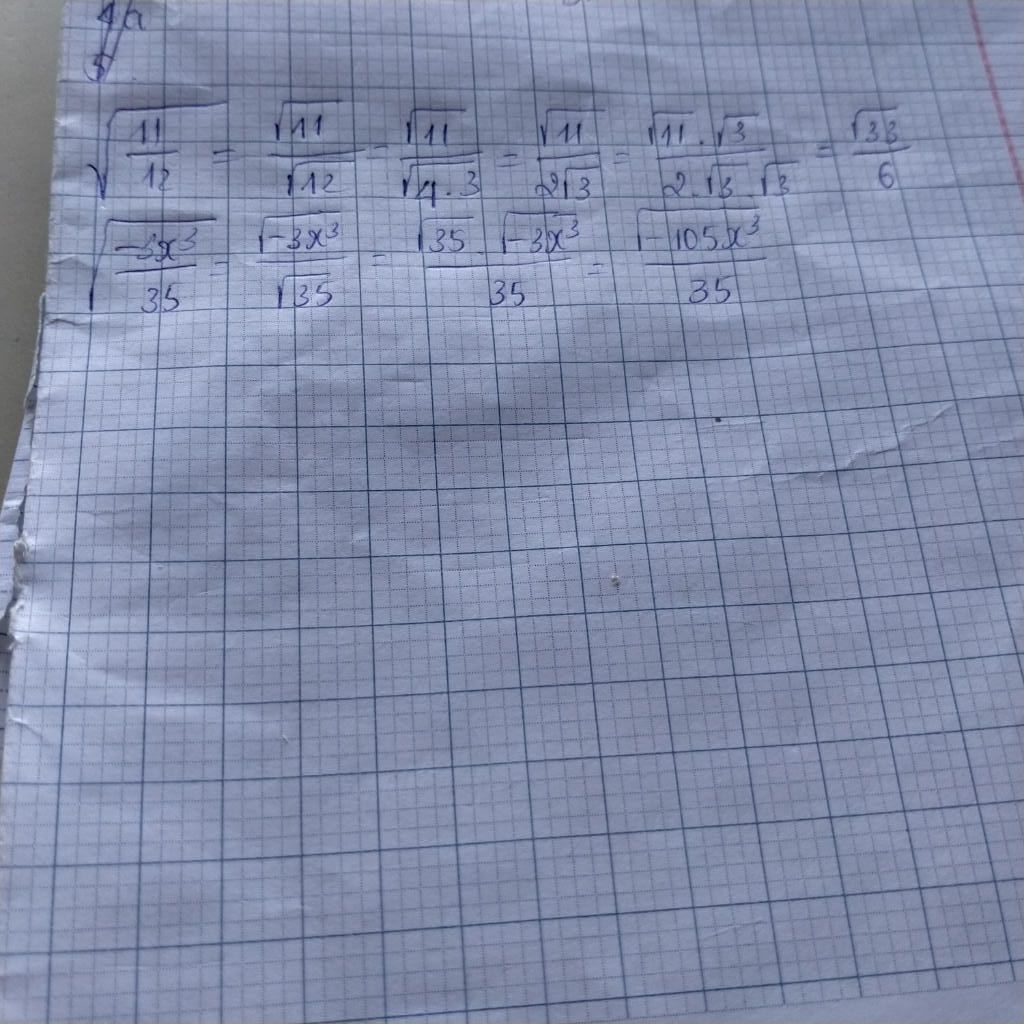 √(11/12) = √11/√12 = √11/√(4·3) = √11/(2√3) = (√11·√3)/(2·√3·√3) = √33/6
√(-3x³/35) = √(-3x³)/√35 = (√35·√(-3x³))/35 = √(-105x³)/35